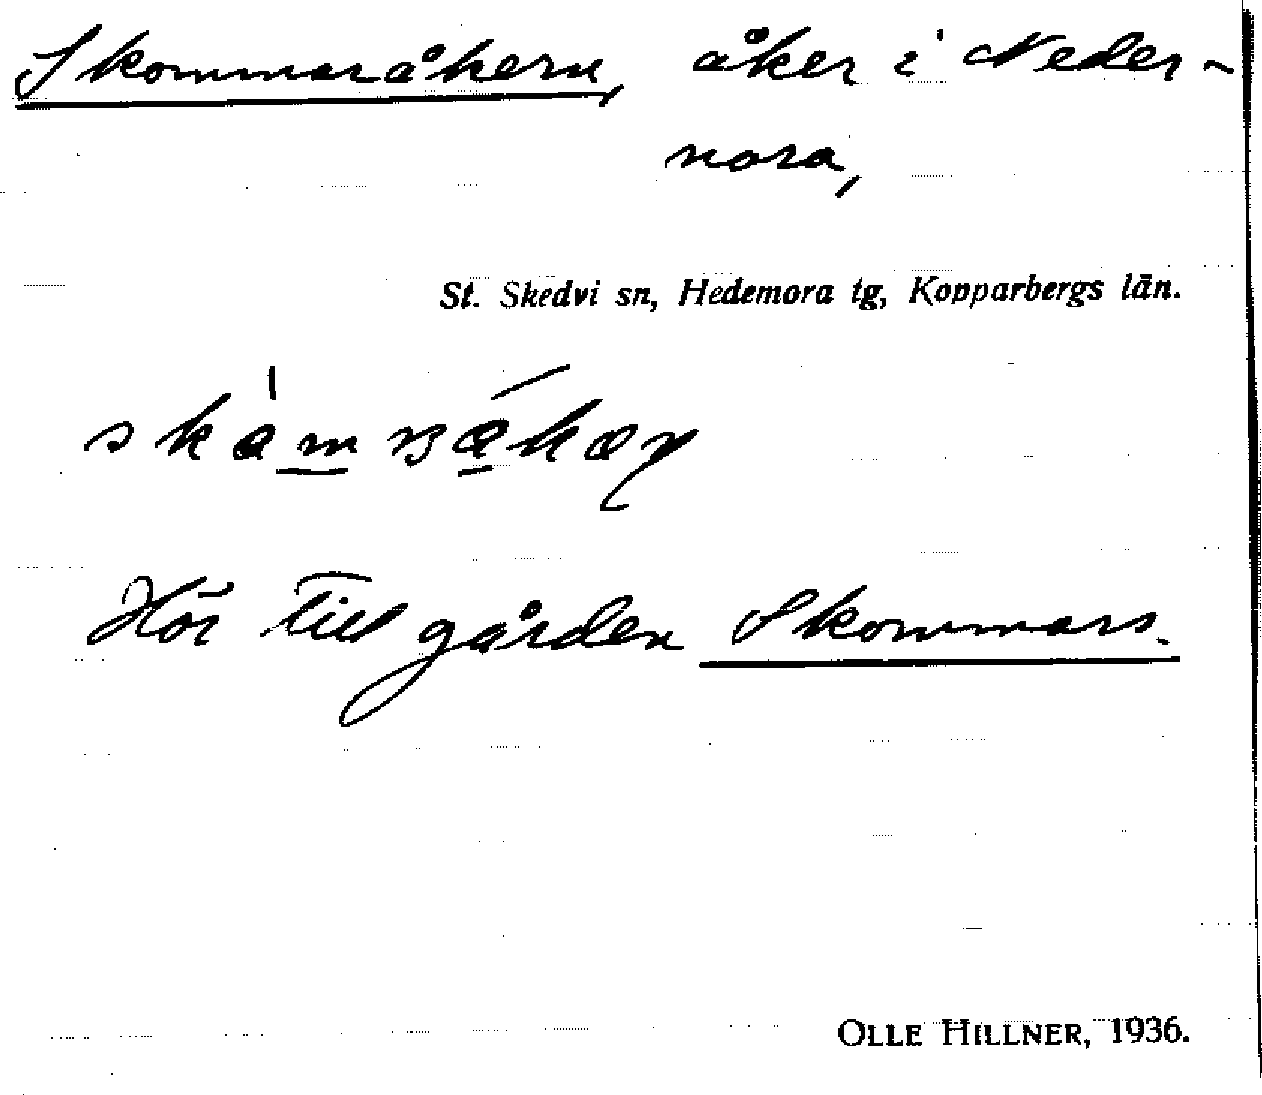 Skommaråkern, åker i Neder-
nora,
St. Skedvi sn, Hedemora tg, Kopparbergs län.
Hör till gården Skommars.
OLLE HILLNER, 1936.